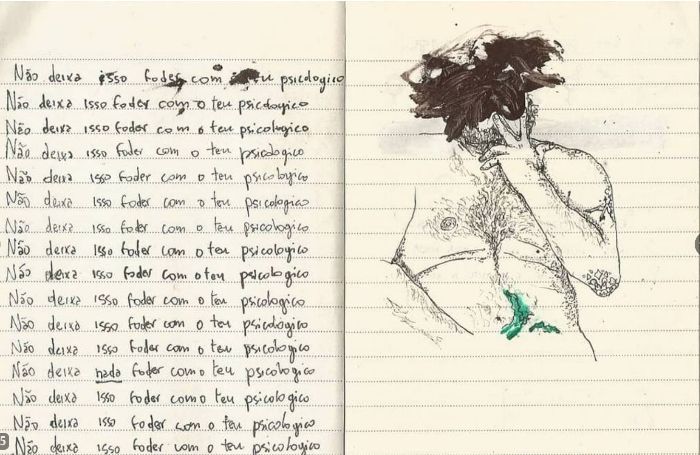 Não deixa isso foder com teu psicologico
Não deixa isso foder com o teu psicologico
Não deixa isso foder com o teu psicologico
Não deixa isso foder com o teu psicologico
Não deixa isso foder com o teu psicologico
Não deixa isso foder com o teu psicologico
Não deixa isso foder com o teu psicologico
Não deixa isso foder com o teu psicologico
Não deixa isso foder com o teu psicologico
Não deixa isso foder com o teu psicologico
Não deixa isso foder com o teu psicologico
Não deixa isso foder com o teu psicologico
Não deixa nada foder com o teu psicologico
Não deixa isso foder com o teu psicologico
Não deixa isso foder com o teu psicologico
Não deixa isso foder com o teu psicologico